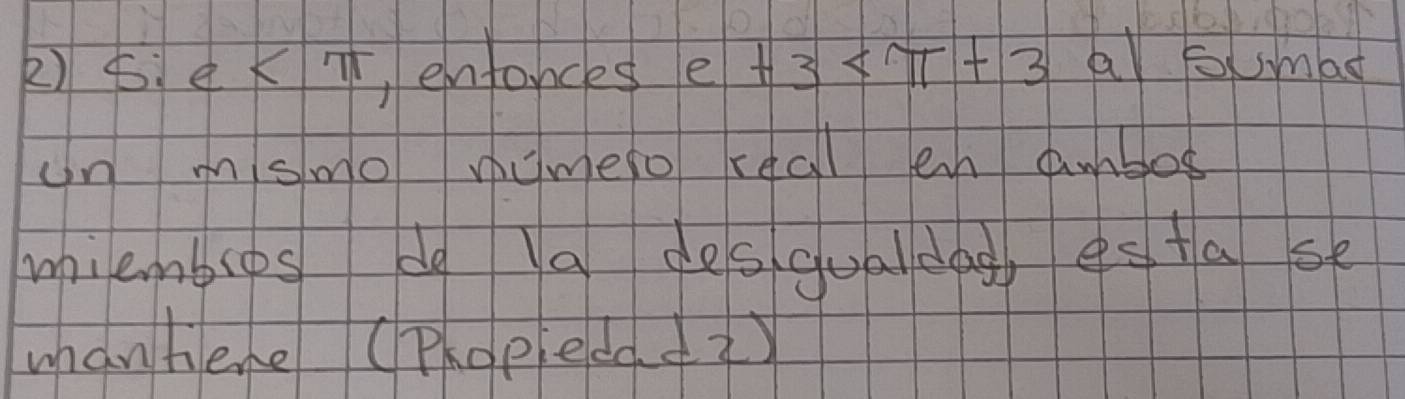 2) Si e < π, entonces e + 3 < π + 3 al sumar
un mismo número real en ambos
miembros de la desigualdad, esta se
mantiene (Propiedad 2)